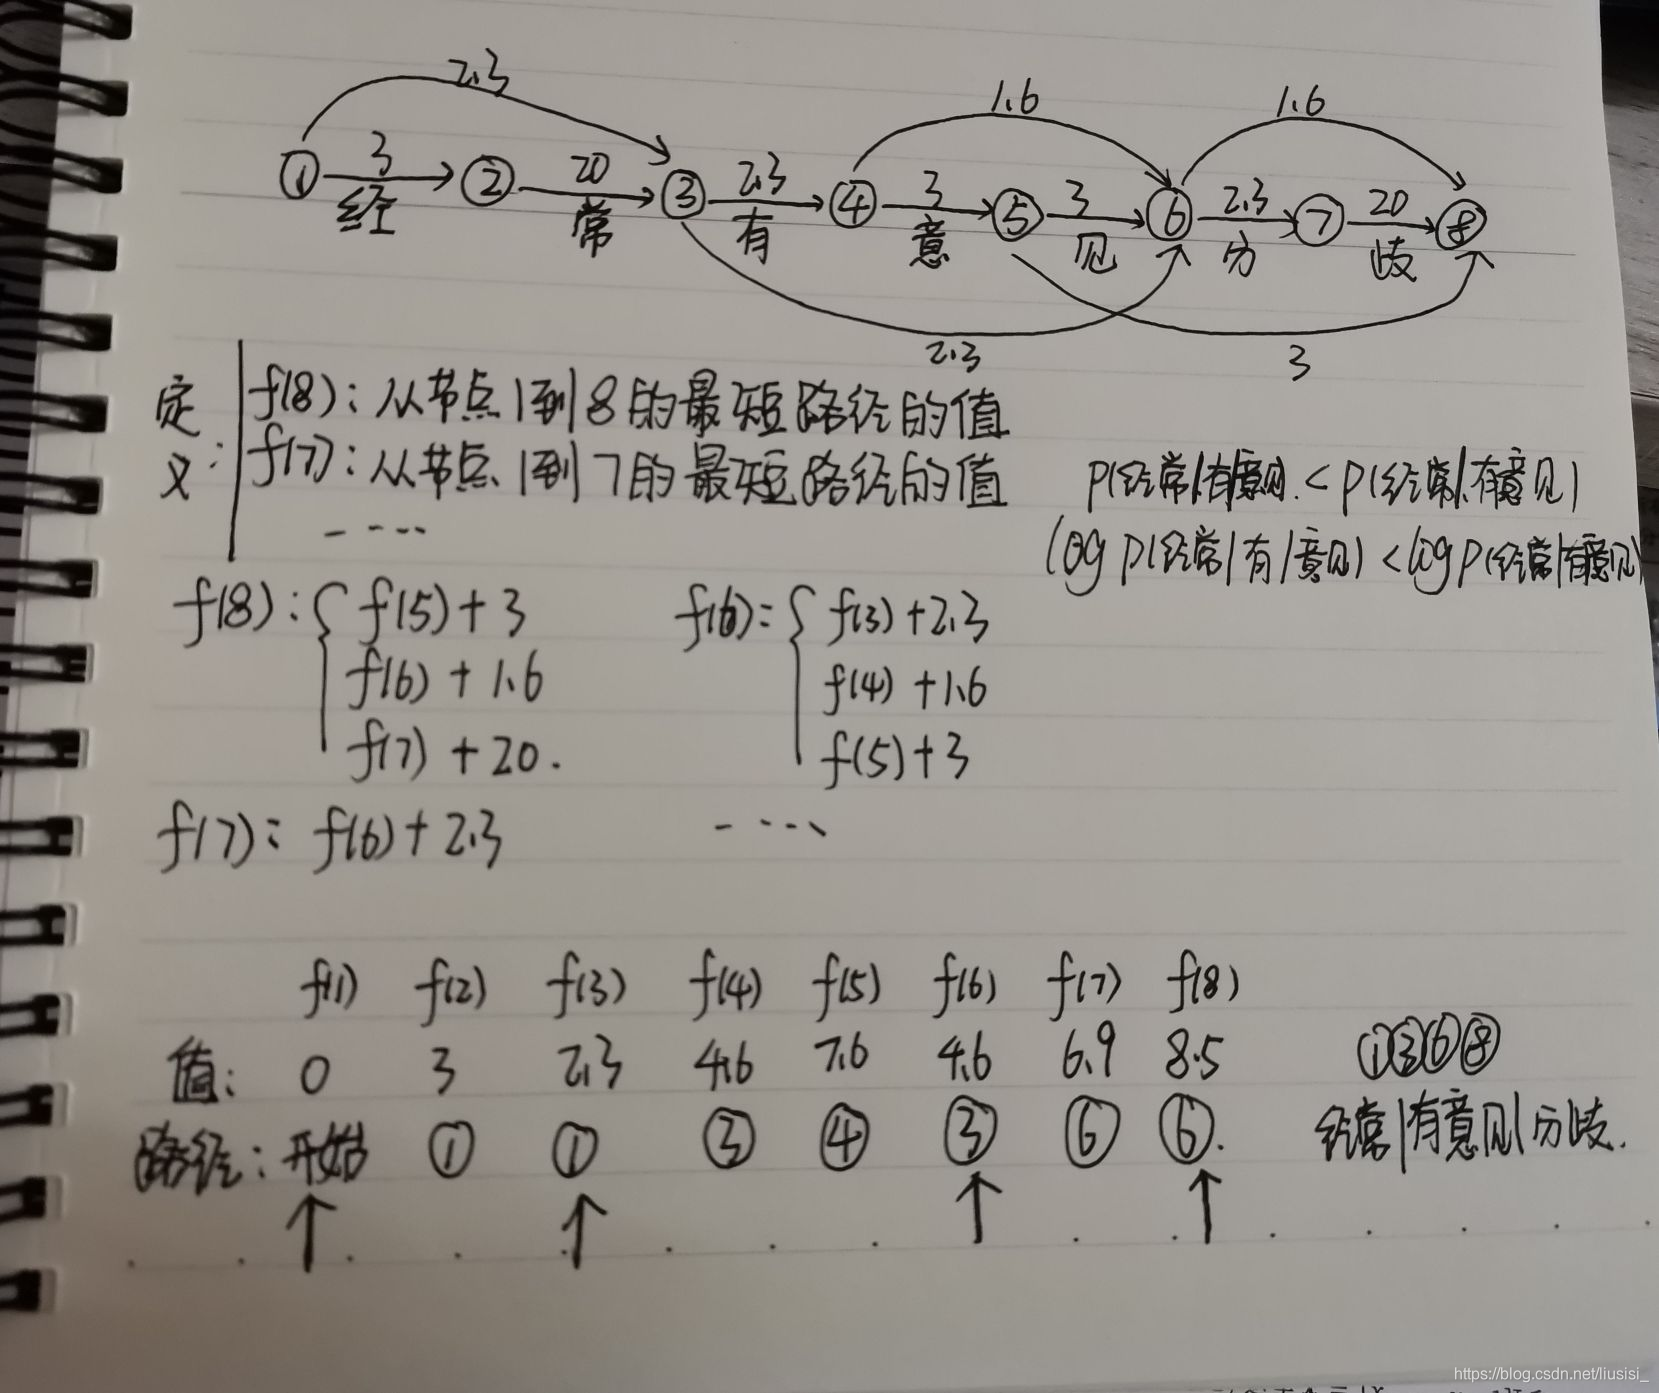 2.3 1.6 1.6
① 3 ② 20 ③ 2.3 ④ 3 ⑤ 3 ⑥ 2.3 ⑦ 20 ⑧
经 常 有 意 见 分 歧
2.3 3
定义:
f(8): 从节点1到8的最短路径的值
f(7): 从节点1到7的最短路径的值
-....
P(经常|有|意见) < P(经常|有意见)
log P(经常|有|意见) < log P(经常|有意见)
f(8): { f(5)+3
f(6)+1.6
f(7)+20.
f(6): { f(3)+2.3
f(4)+1.6
f(5)+3
f(7): f(6)+2.3
-....
f(1) f(2) f(3) f(4) f(5) f(6) f(7) f(8)
值: 0 3 2.3 4.6 7.6 4.6 6.9 8.5
①③⑥⑧
路径: 开始 ① ① ③ ④ ③ ⑥ ⑥.
经常|有意见|分歧.
https://blog.csdn.net/liusisi_